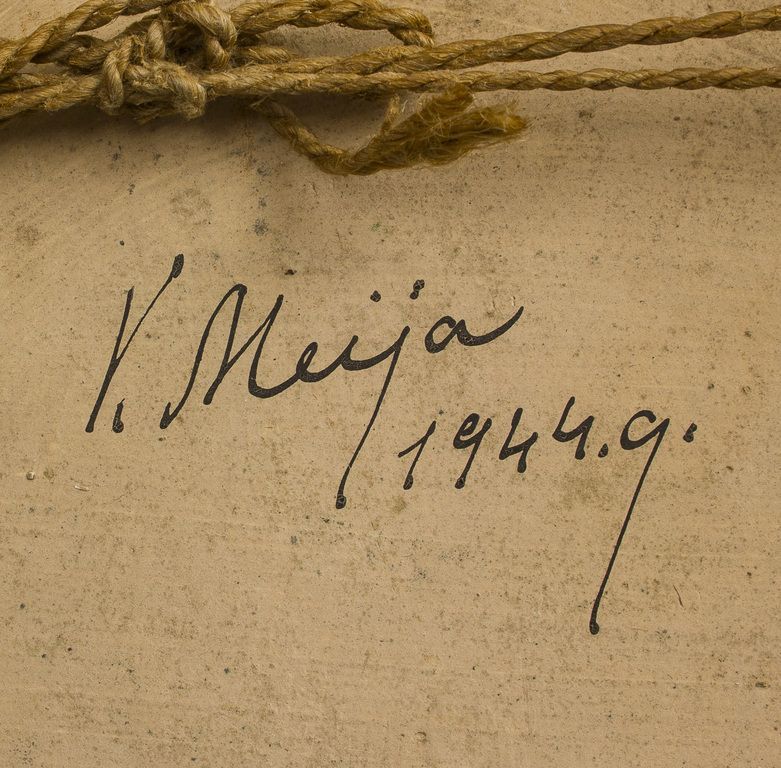 K. Meija
1944.g.